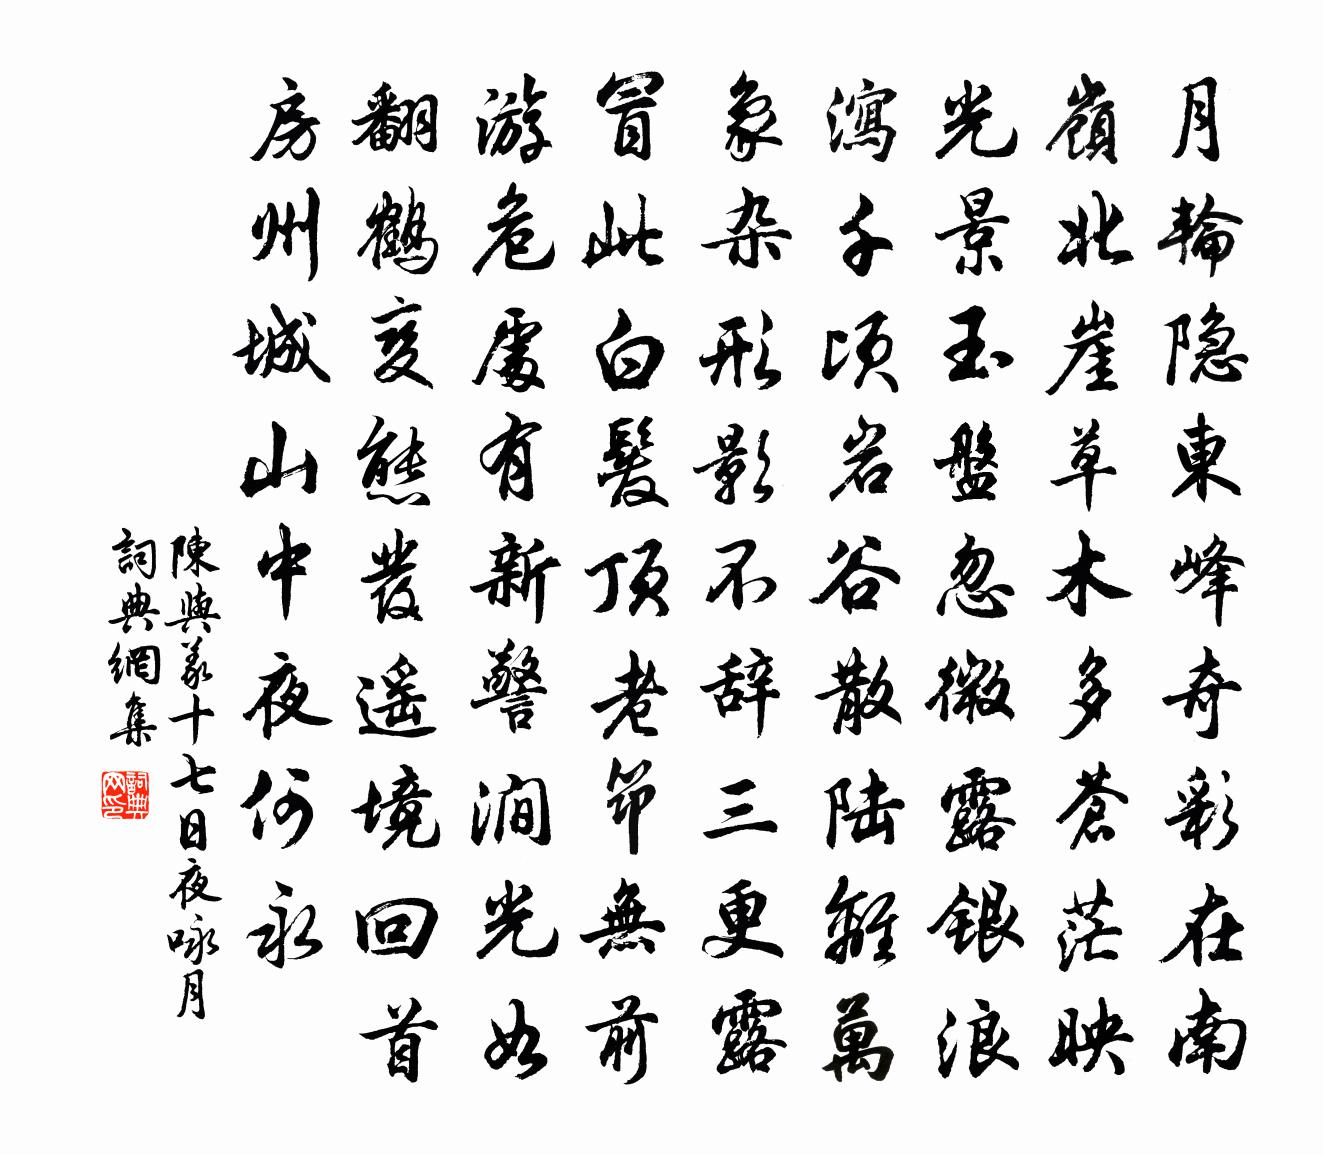 月輪隐東峰奇彩在南
嶺北崖草木多蒼茫映
光景玉盤忽微露銀浪
瀉千頃岩谷散陆離萬
象杂形影不辞三更露
冒此白髮顶老筇無前
游危處有新警澗光如
翻鶴变態發遥境回首
房州城山中夜何永
陳與義十七日夜咏月
詞典網集
詞典网印